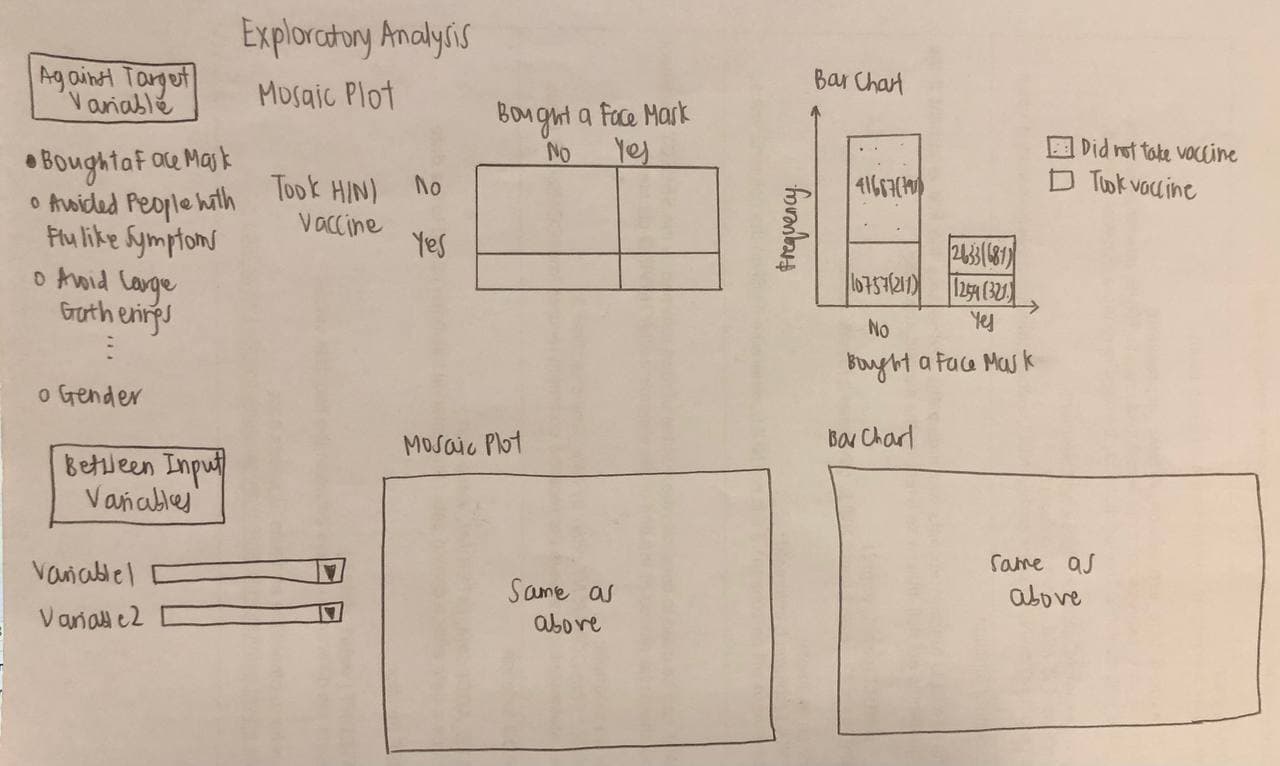 Exploratory Analysis
Against Target
Variable
Bought a Face Mask
Avoided People with
Flu like Symptoms
Avoid Large
Gatherings
Gender
Mosaic Plot
Bought a Face Mask
No Yes
Took H1N1
Vaccine
No
Yes
Bar Chart
Frequency
41687(79%)
10757(21%)
2633(68%)
1259(32%)
No
Yes
Bought a Face Mask
Did not take vaccine
Took vaccine
Between Input
Variables
Variable1
Variable2
Mosaic Plot
Same as
above
Bar Chart
same as
above